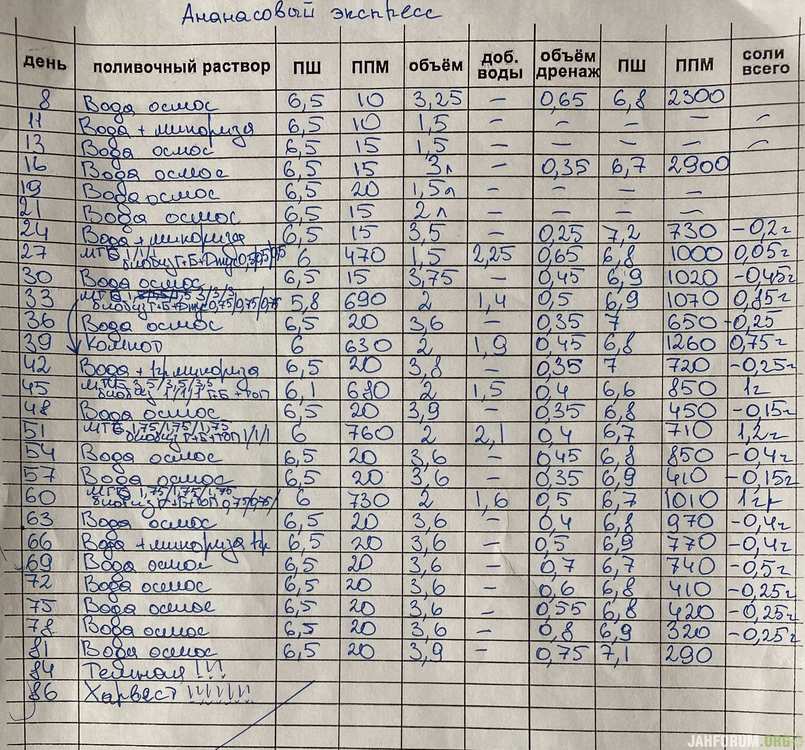 Ананасовый экспресс
день поливочный раствор ПШ ППМ объём доб. воды объём дренаж ПШ ППМ соли всего
8 Вода осмос 6,5 10 3,25 – 0,65 6,8 2300
11 Вода + микориза 6,5 10 1,5 – – – – –
13 Вода осмос 6,5 15 1,5 – – – – –
16 Вода осмос 6,5 15 3л – 0,35 6,7 2900
19 Вода осмос 6,5 20 1,5л – – – –
21 Вода осмос 6,5 15 2л – – – –
24 Вода + микориза 6,5 15 3,5 – 0,25 7,2 730 –0,2г
27 МГБ 1/1/1 6 470 1,5 2,25 0,65 6,8 1000 0,05г
30 Вода осмос 6,5 15 3,75 – 0,45 6,9 1020 –0,45г
33 МГБ 3/3/3 0,75/0,75/0,75 5,8 690 2 1,4 0,5 6,9 1070 0,85г
36 Вода осмос 6,5 20 3,6 – 0,35 7 650 –0,25
39 Компот 6 630 2 1,9 0,45 6,8 1260 0,75г
42 Вода + 1гр микориза 6,5 20 3,8 – 0,35 7 720 –0,25г
45 МГБ 3,5/3,5/3,5 1/1/1 Г+Б+ТОП 6,1 680 2 1,5 0,4 6,6 850 1г
48 Вода осмос 6,5 20 3,9 – 0,35 6,8 450 –0,15г
51 МГБ 1,75/1,75/1,75 Г+Б+ТОП 1/1/1 6 760 2 2,1 0,4 6,7 710 1,2г
54 Вода осмос 6,5 20 3,6 – 0,45 6,8 850 –0,4г
57 Вода осмос 6,5 20 3,6 – 0,35 6,9 410 –0,15г
60 МГБ 1,75/1,75/1,75 Г+Б+ТОП 0,75/0,75/ 6 730 2 1,6 0,5 6,7 1010 1гр
63 Вода осмос 6,5 20 3,6 – 0,4 6,8 970 –0,4г
66 Вода + микориза 1гр 6,5 20 3,6 – 0,5 6,9 770 –0,4г
69 Вода осмос 6,5 20 3,6 – 0,7 6,7 740 –0,5г
72 Вода осмос 6,5 20 3,6 – 0,6 6,8 410 –0,25г
75 Вода осмос 6,5 20 3,6 – 0,55 6,8 420 –0,25г
78 Вода осмос 6,5 20 3,6 – 0,8 6,9 320 –0,25г
81 Вода осмос 6,5 20 3,9 – 0,75 7,1 290
84 Темная !!!
86 Харвест !!!!!!!
JAHFORUM.ORG